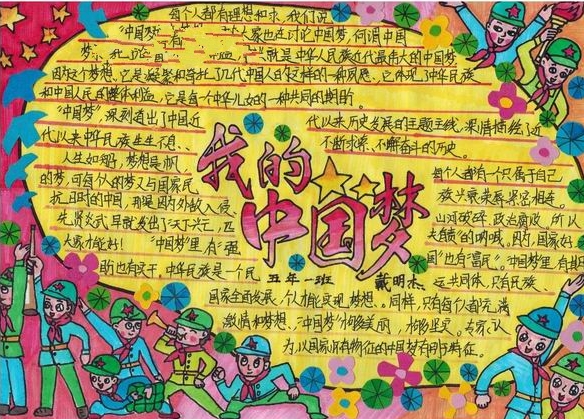 每个人都有理想和求，我们说
"中国梦" 大家也在讨论中国梦，何谓中国
梦， 就是中华人民族近代最伟大的中国梦
因为这个梦想，它是凝聚和寄托了几代中国人的 的一种 ，它体现了中华民族
和中国人民的整体利益，它是每个中华儿女的一种共同的期盼。
"中国梦"深刻道出了中国近
代以来历史发展的主题主线，深情描绘了近
代以来中华民族生生不息、
不断求索、不懈奋斗的历史。
我的
中国梦
五年一班 戴明杰
人生如船，梦想是帆
每个人都有一只属于自己
的梦，可每个人的梦又与国家民
族兴衰荣辱紧密相连。
抗日时的中国，那是因为外敌入侵
山河破碎，政治腐败，所以
先贤 早就发出了"天下兴亡，匹
夫有责"的呐喊，因为，国家好，
大家才能好！ "中国梦"里有"强
国"也有"富民"。"中国梦"里，有
盼也有实干，中华民族是一个
运共同体，只有民族、
国家全面发展，个人才能实现梦想、。同样，只有每个人都充满
激情和梦想，"中国梦"才够美丽，才够坚实。专家认
为，以国家 有特征的中国梦有 特征。